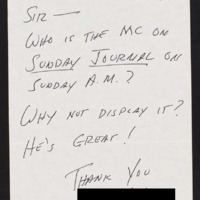 SIR —
WHO IS THE MC ON
SUNDAY JOURNAL ON
SUNDAY A.M.?
WHY NOT DISPLAY IT?
HE'S GREAT!
THANK YOU